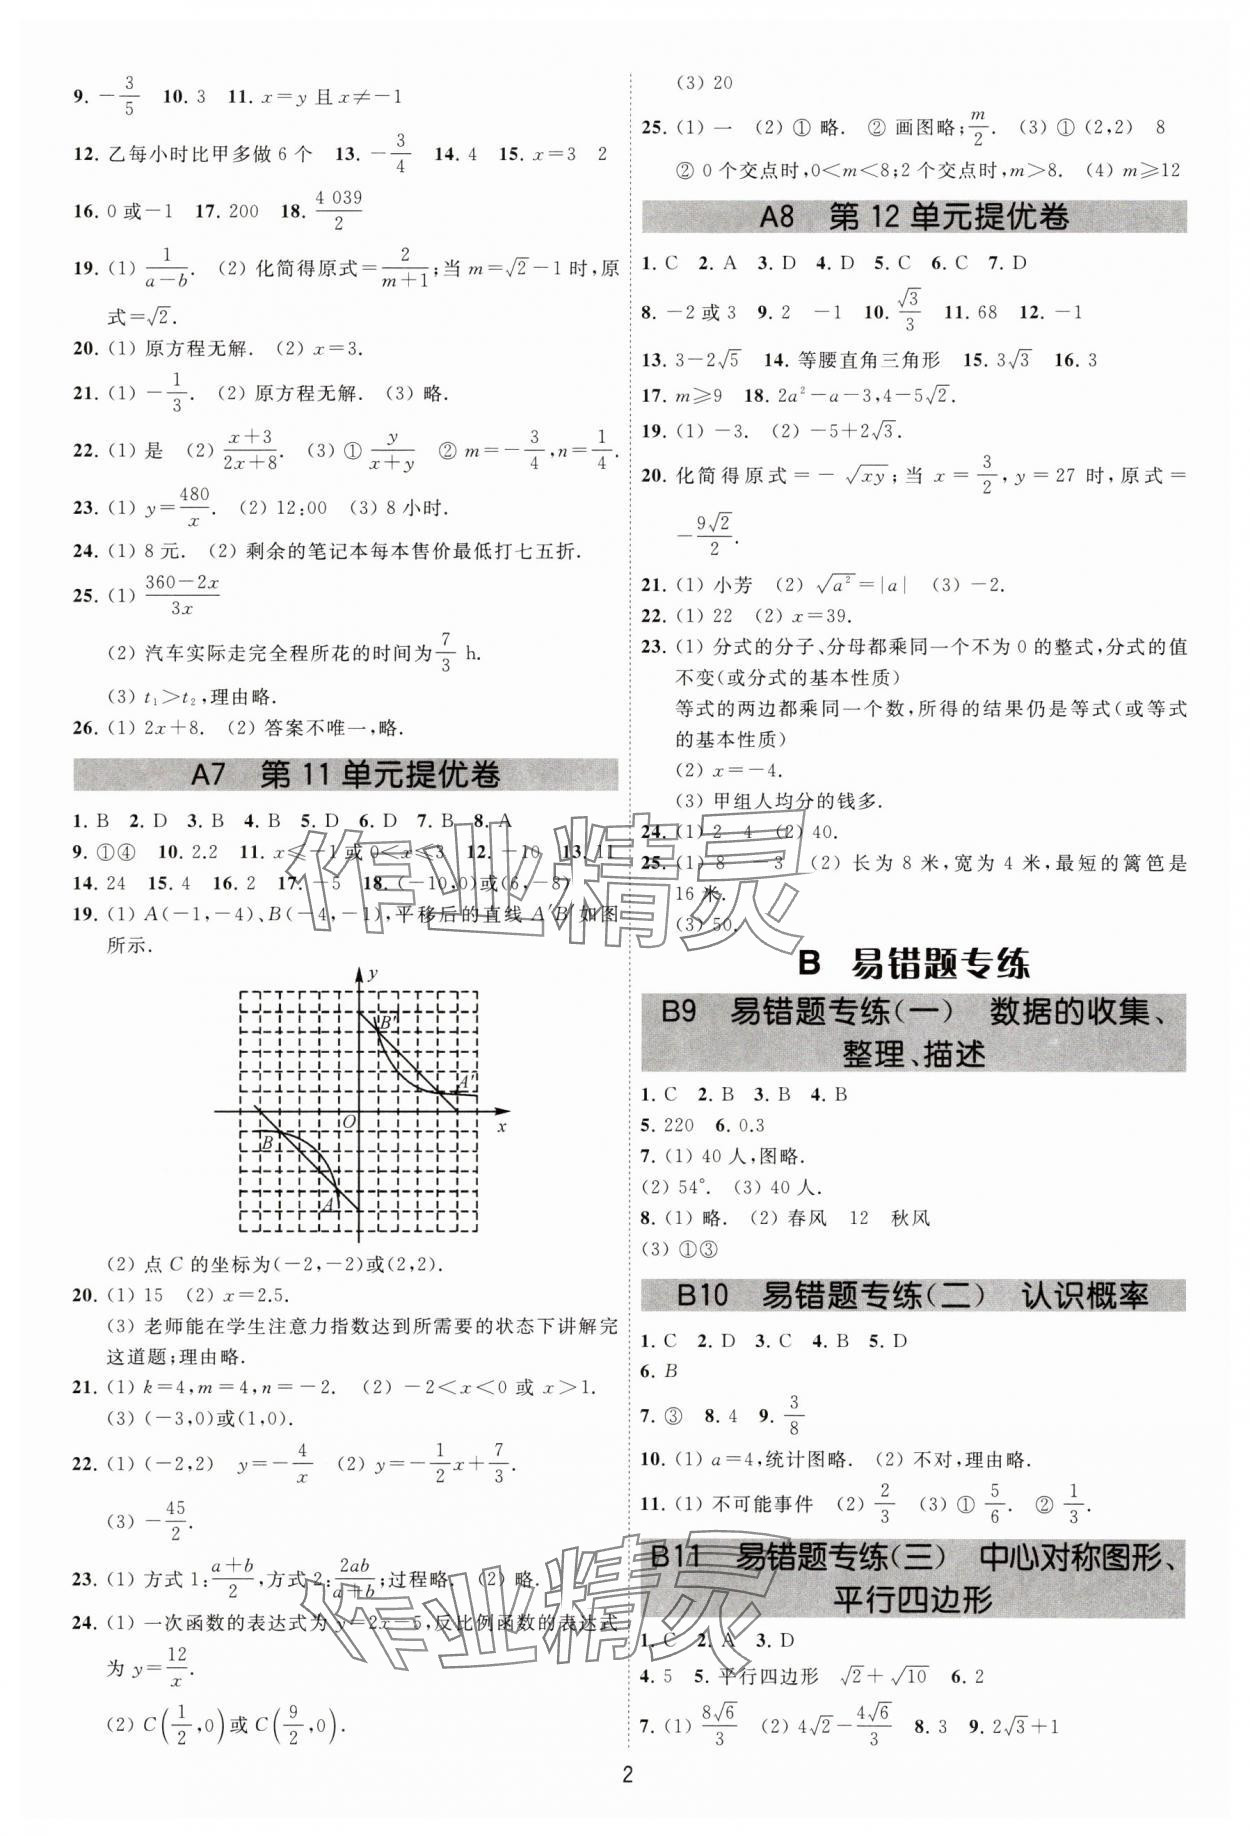 9. −3/5　10. 3　11. x=y 且 x≠−1
12. 乙每小时比甲多做 6 个　13. −3/4　14. 4　15. x=3　2
16. 0 或−1　17. 200　18. 4 039/2
19. (1) 1/(a−b).　(2) 化简得原式=2/(m+1);当 m=√2−1 时,原
式=√2.
20. (1) 原方程无解.　(2) x=3.
21. (1) −1/3.　(2) 原方程无解.　(3) 略.
22. (1) 是　(2) (x+3)/(2x+8).　(3) ① y/(x+y)　② m=−3/4,n=1/4.
23. (1) y=480/x.　(2) 12:00　(3) 8 小时.
24. (1) 8 元.　(2) 剩余的笔记本每本售价最低打七五折.
25. (1) (360−2x)/3x
(2) 汽车实际走完全程所花的时间为7/3 h.
(3) t₁>t₂,理由略.
26. (1) 2x+8.　(2) 答案不唯一,略.
A7　第 11 单元提优卷
1. B　2. D　3. B　4. B　5. D　6. D　7. B　8. A
9. ①④　10. 2.2　11. x≤−1 或 0<x≤3　12. −10　13. 11
14. 24　15. 4　16. 2　17. −5　18. (−10,0)或(6,−8)
19. (1) A(−1,−4)、B(−4,−1),平移后的直线 A′B′ 如图
所示.
y
B′
A′
O
x
B
A
(2) 点 C 的坐标为(−2,−2)或(2,2).
20. (1) 15　(2) x=2.5.
(3) 老师能在学生注意力指数达到所需要的状态下讲解完
这道题;理由略.
21. (1) k=4,m=4,n=−2.　(2) −2<x<0 或 x>1.
(3) (−3,0)或(1,0).
22. (1) (−2,2)　y=−4/x　(2) y=−1/2x+7/3.
(3) −45/2.
23. (1) 方式 1:(a+b)/2,方式 2:2ab/(a+b);过程略.　(2) 略.
24. (1) 一次函数的表达式为 y=2x−5,反比例函数的表达式
为 y=12/x.
(2) C(1/2,0)或 C(9/2,0).
(3) 20
25. (1) 一　(2) ① 略.　② 画图略;m/2.　(3) ① (2,2)　8
② 0 个交点时,0<m<8;2 个交点时,m>8.　(4) m≥12
A8　第 12 单元提优卷
1. C　2. A　3. D　4. D　5. C　6. C　7. D
8. −2 或 3　9. 2　−1　10. √3/3　11. 68　12. −1
13. 3−2√5　14. 等腰直角三角形　15. 3√3　16. 3
17. m≥9　18. 2a²−a−3,4−5√2.
19. (1) −3.　(2) −5+2√3.
20. 化简得原式=−√xy;当 x=3/2,y=27 时,原式=
−9√2/2.
21. (1) 小芳　(2) √a²=|a|　(3) −2.
22. (1) 22　(2) x=39.
23. (1) 分式的分子、分母都乘同一个不为 0 的整式,分式的值
不变(或分式的基本性质)
等式的两边都乘同一个数,所得的结果仍是等式(或等式
的基本性质)
(2) x=−4.
(3) 甲组人均分的钱多.
24. (1) 2　4　(2) 40.
25. (1) 8　−3　(2) 长为 8 米,宽为 4 米,最短的篱笆是
16 米.
(3) 50.
B　易错题专练
B9　易错题专练(一)　数据的收集、
整理、描述
1. C　2. B　3. B　4. B
5. 220　6. 0.3
7. (1) 40 人,图略.
(2) 54°.　(3) 40 人.
8. (1) 略.　(2) 春风　12　秋风
(3) ①③
B10　易错题专练(二)　认识概率
1. C　2. D　3. C　4. B　5. D
6. B
7. ③　8. 4　9. 3/8
10. (1) a=4,统计图略.　(2) 不对,理由略.
11. (1) 不可能事件　(2) 2/3　(3) ① 5/6.　② 1/3.
B11　易错题专练(三)　中心对称图形、
平行四边形
1. C　2. A　3. D
4. 5　5. 平行四边形　√2+√10　6. 2
7. (1) 8√6/3　(2) 4√2−4√6/3　8. 3　9. 2√3+1
2
作业精灵
作业精灵